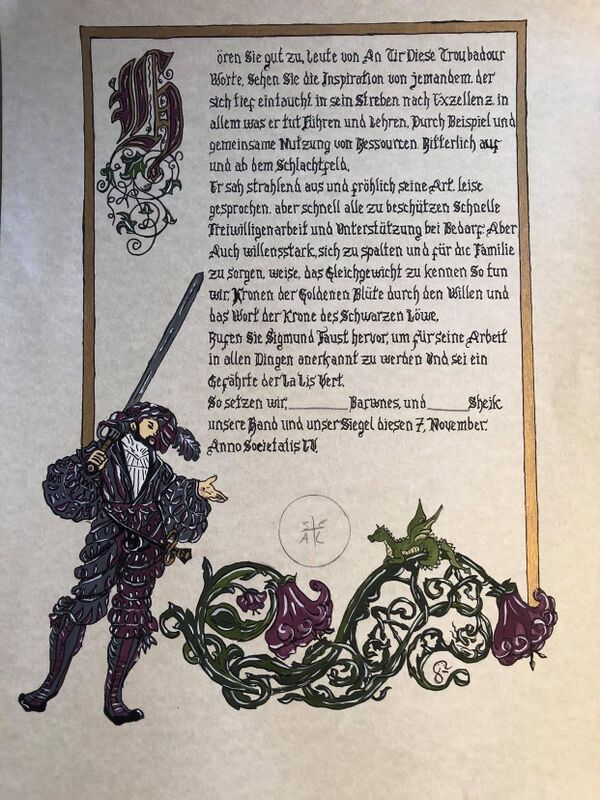 Hören Sie gut zu, Leute von An Tir Diese Troubadour
Worte, Sehen Sie die Inspiration von jemandem, der
sich tief eintaucht in sein Streben nach Exzellenz. in
allem was er tut Führen und Lehren, Durch Beispiel und
gemeinsame Nutzung von Ressourcen. Ritterlich auf
und ab dem Schlachtfeld.
Er sah strahlend aus und fröhlich seine Art. leise
gesprochen. aber schnell alle zu beschützen Schnelle
Freiwilligenarbeit und Unterstützung bei Bedarf: Aber
Auch willensstark, sich zu spalten und für die Familie
zu sorgen, weise, das Gleichgewicht zu kennen So tun
wir, Kronen der Goldenen Blüte durch den Willen und
das Wort der Krone des Schwarzen Löwe,
Rufen Sie Sigmund Faust hervor, um für seine Arbeit
in allen Dingen anerkannt zu werden Und sei ein
Gefährte der La Lis Vert.
So setzen wir, ________ Barwnes, und _____ Sheik
unsere Hand und unser Siegel diesen 7, November.
Anno Societatis LV.
SE
AL